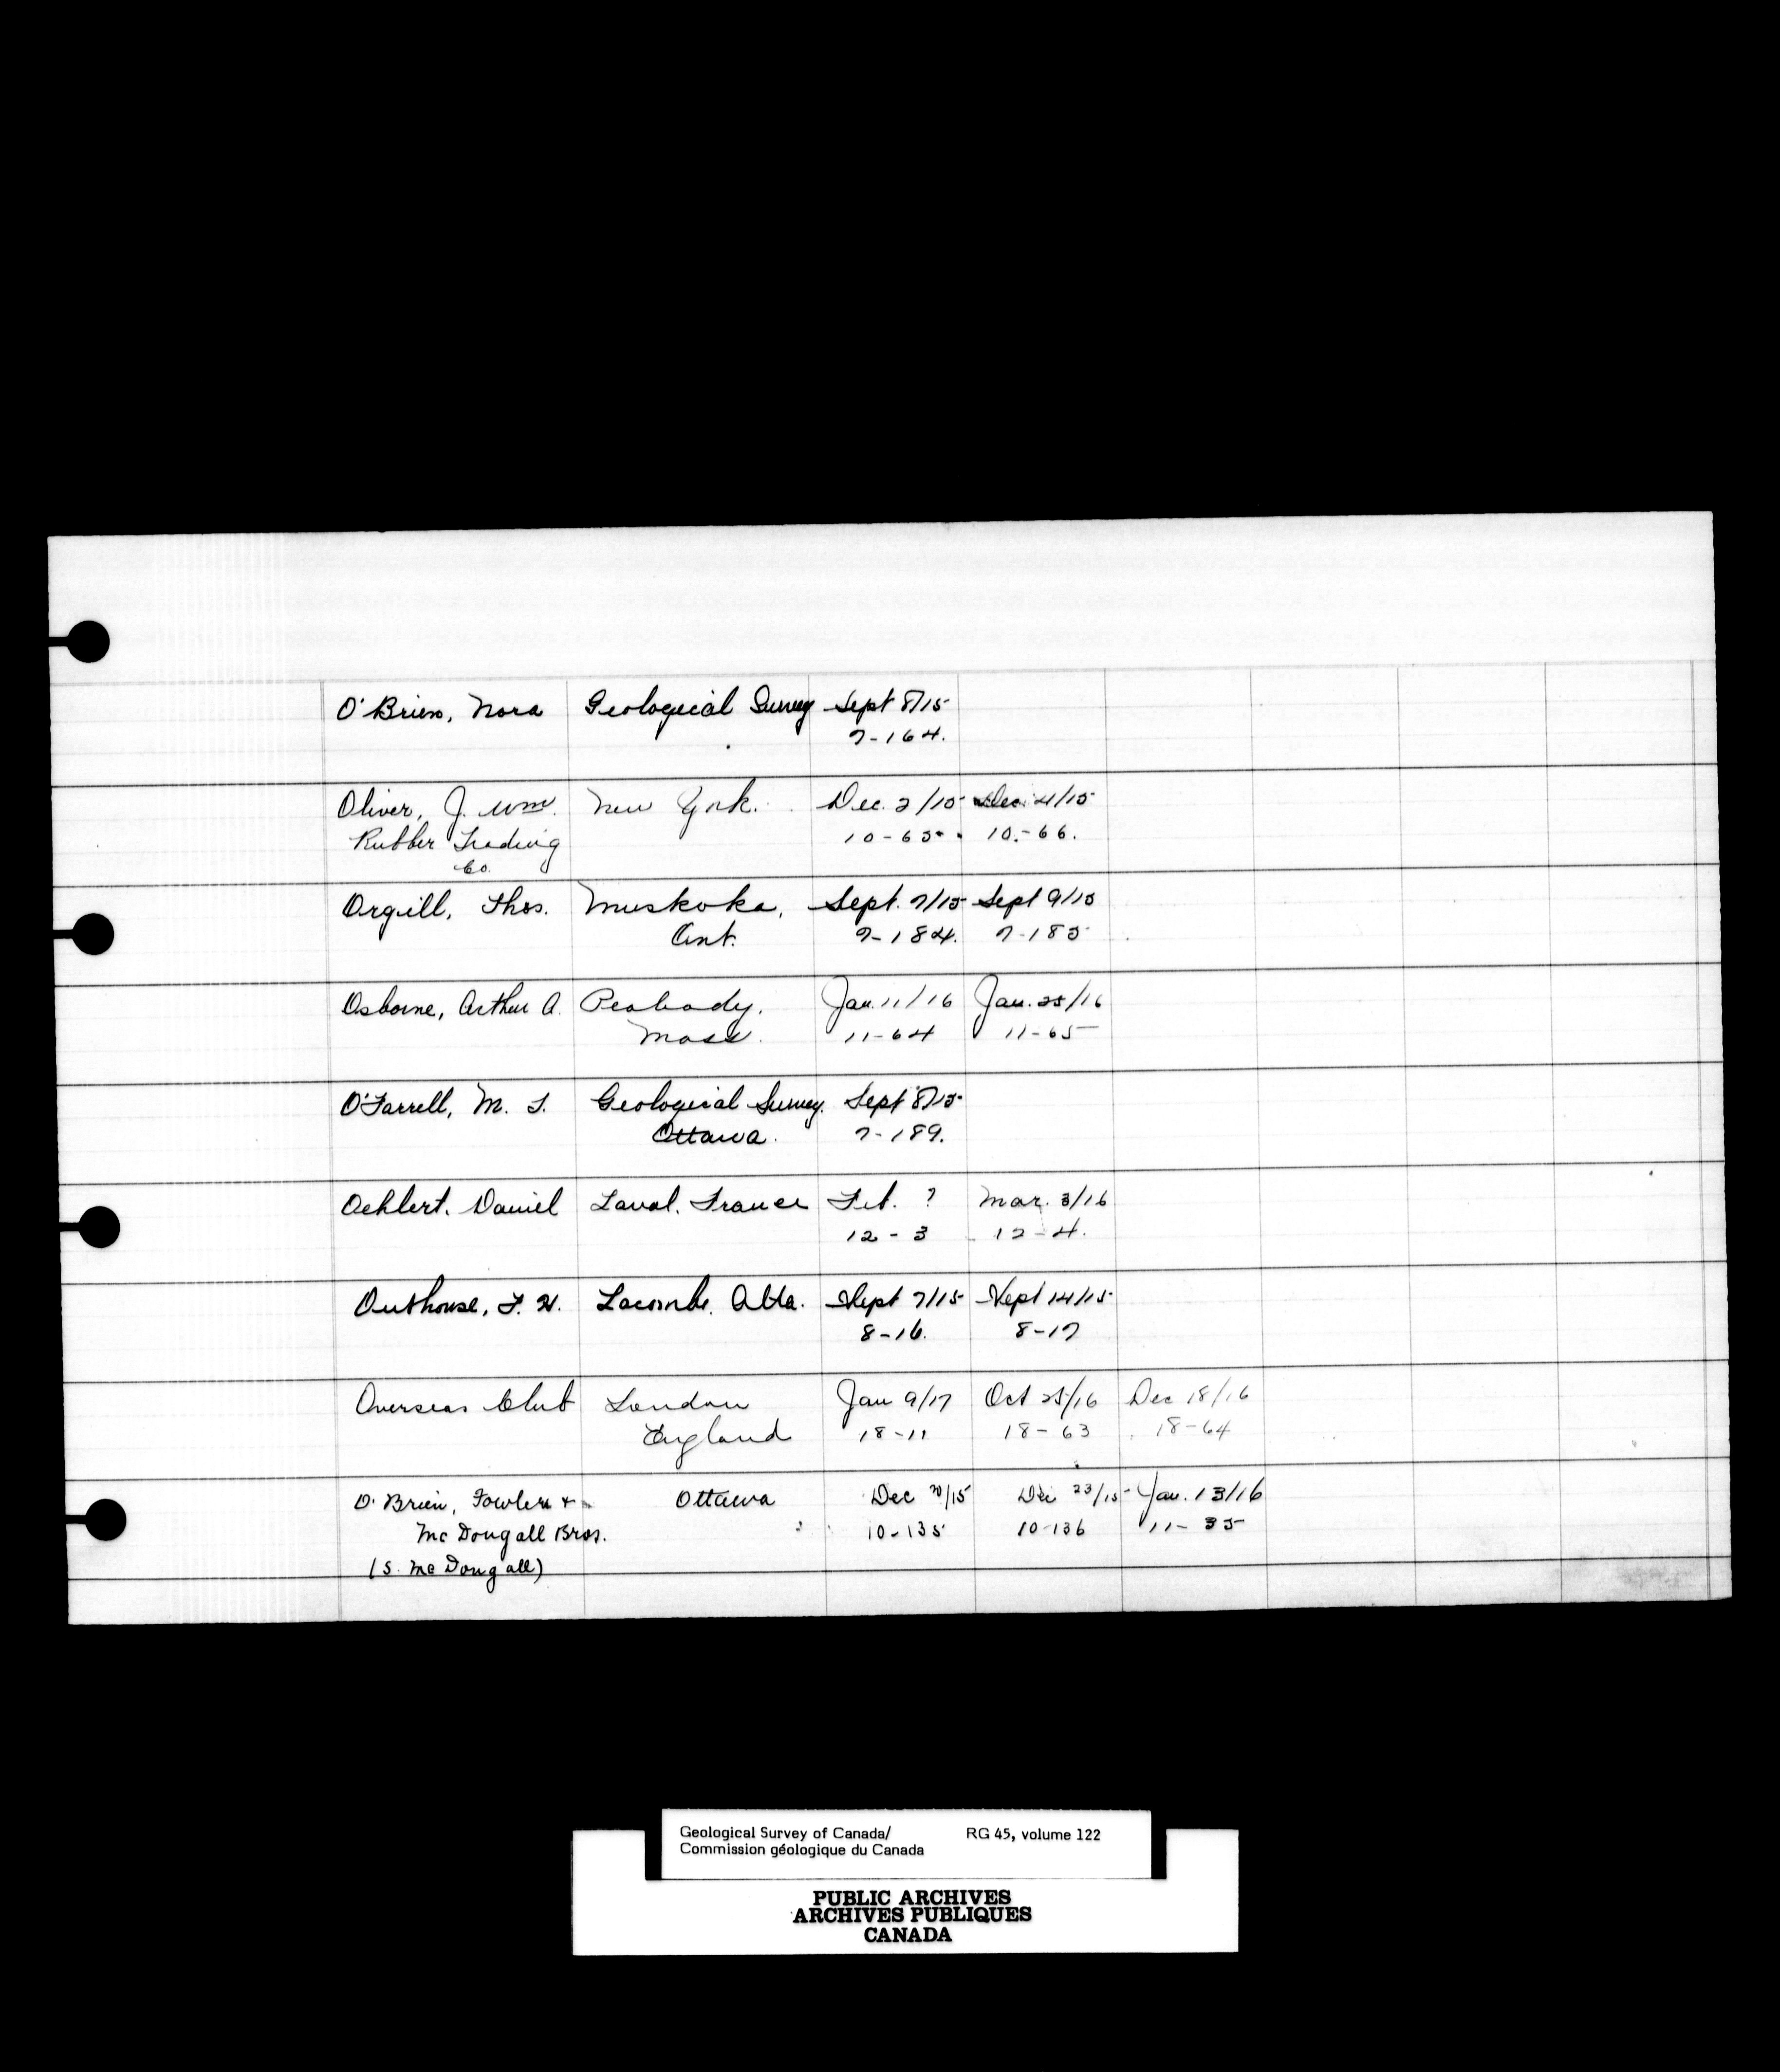 O'Brien, Nora Geological Survey Sept 8/15
7-164.
Oliver, J. Wm. New York. Dec. 2/15 Dec. 4/15
Rubber Trading 10-65. 10.-66.
Co.
Orgill, Thos. Muskoka, Sept. 7/15 Sept 9/15
Ont. 7-184. 7-185
Osborne, Arthur A. Peabody, Jan. 11/16 Jan. 25/16
Mass. 11-64 11-65
O'Farrell, M. J. Geological Survey. Sept 8/15
Ottawa. 7-189.
Oehlert, Daniel Laval, France Feb. ? Mar. 3/16
12-3 12-4.
Outhouse, F. H. Lacombe, Alta. Sept 7/15 Sept 14/15
8-16. 8-17
Overseas Club London Jan 9/17 Oct 25/16 Dec 18/16
England 18-11 18-63 18-64
O'Brien, Fowler & Ottawa Dec 20/15 Dec 23/15 Jan. 13/16
McDougall Bros. 10-135 10-136 11-35
(S. McDougall)
Geological Survey of Canada/ RG 45, volume 122
Commission géologique du Canada
PUBLIC ARCHIVES
ARCHIVES PUBLIQUES
CANADA